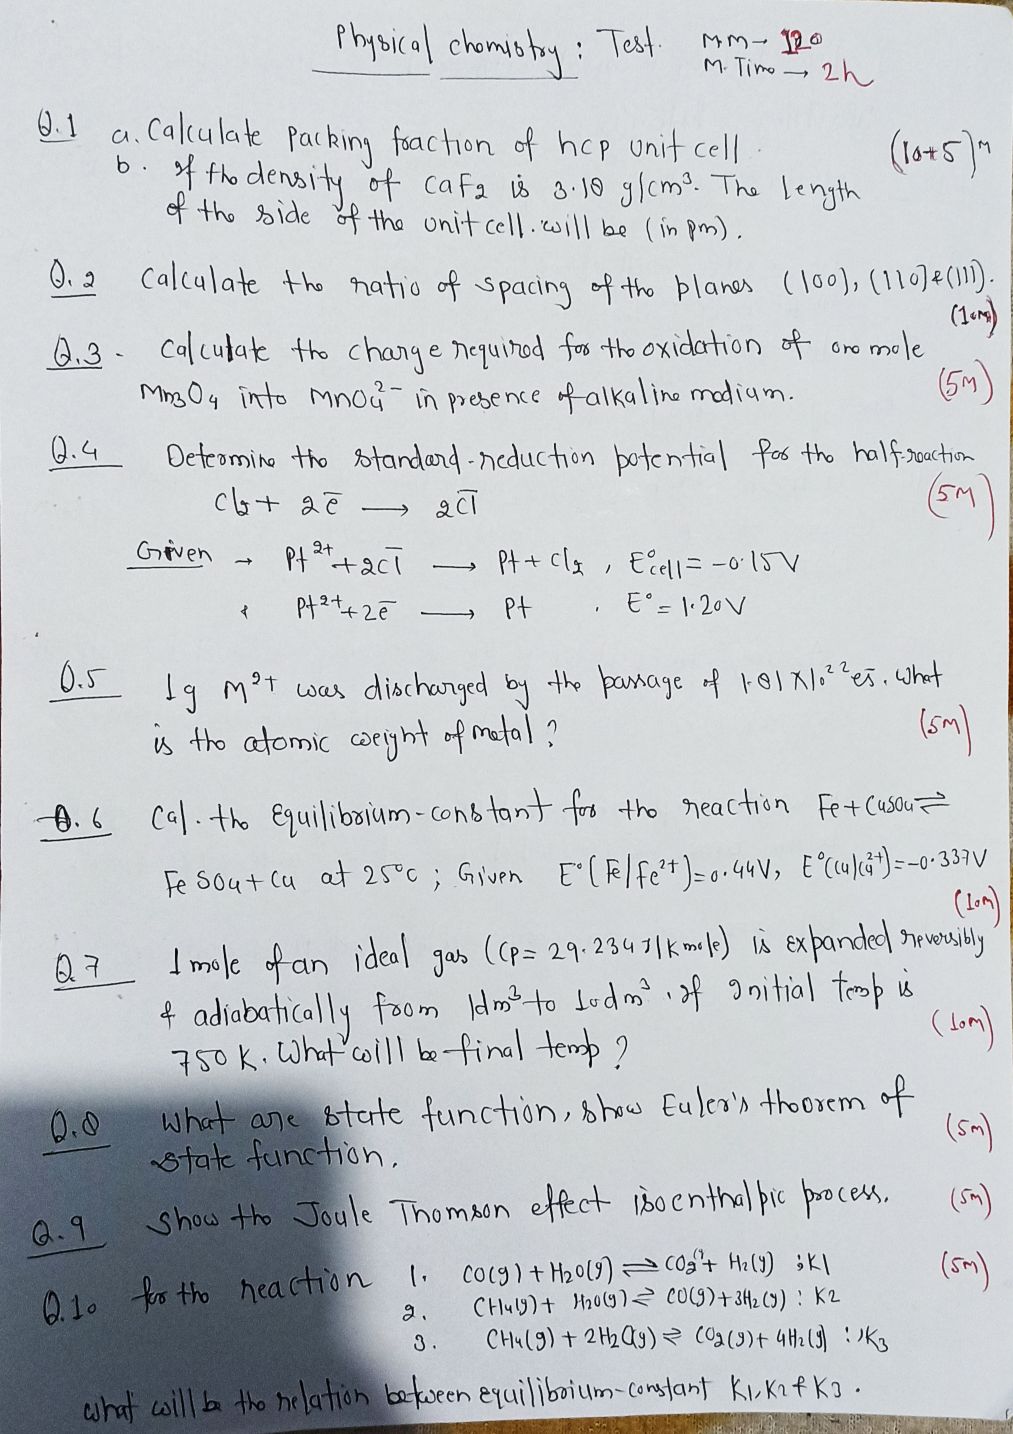 Physical chemistry : Test. MM → 120
M. Time → 2h
Q.1 a. Calculate Packing fraction of hcp unit cell. (10+5)M
b. If the density of CaF2 is 3.18 g/cm³. The Length
of the side of the unit cell. will be (in pm).
Q.2 Calculate the ratio of spacing of the planes (100), (110) & (111).
(10M)
Q.3 - Calculate the charge required for the oxidation of one mole
Mn3O4 into MnO4²⁻ in presence of alkaline medium. (5M)
Q.4 Determine the standard-reduction potential for the half-reaction
Cl2 + 2e̅ → 2Cl̅ (5M)
Given → Pt²⁺ + 2Cl̅ → Pt + Cl2 , E°cell = -0.15V
& Pt²⁺ + 2e̅ → Pt , E° = 1.20V
Q.5 1g M²⁺ was discharged by the passage of 1.81 X10²² e̅s. What
is the atomic weight of metal ? (5M)
Q.6 Cal. the Equilibrium-constant for the reaction Fe + CuSO4 ⇌
FeSO4 + Cu at 25°C ; Given E°(Fe/Fe²⁺)=0.44V, E°(Cu/Cu²⁺)=-0.337V
(10M)
Q.7 1 mole of an ideal gas (CP = 29.234 J/K mole) is expanded reversibly
& adiabatically from 1dm³ to 10dm³. If Initial temp is
750 K. What will be final temp ? (10M)
Q.8 What are state function, show Euler's theorem of
state function. (5M)
Q.9 Show the Joule Thomson effect isoenthalpic process. (5M)
Q.10 for the reaction 1. CO(g) + H2O(g) ⇌ CO2(g) + H2(g) ; K1 (5M)
2. CH4(g) + H2O(g) ⇌ CO(g) + 3H2(g) : K2
3. CH4(g) + 2H2O(g) ⇌ CO2(g) + 4H2(g) : K3
what will be the relation between equilibrium-constant K1, K2 & K3 .